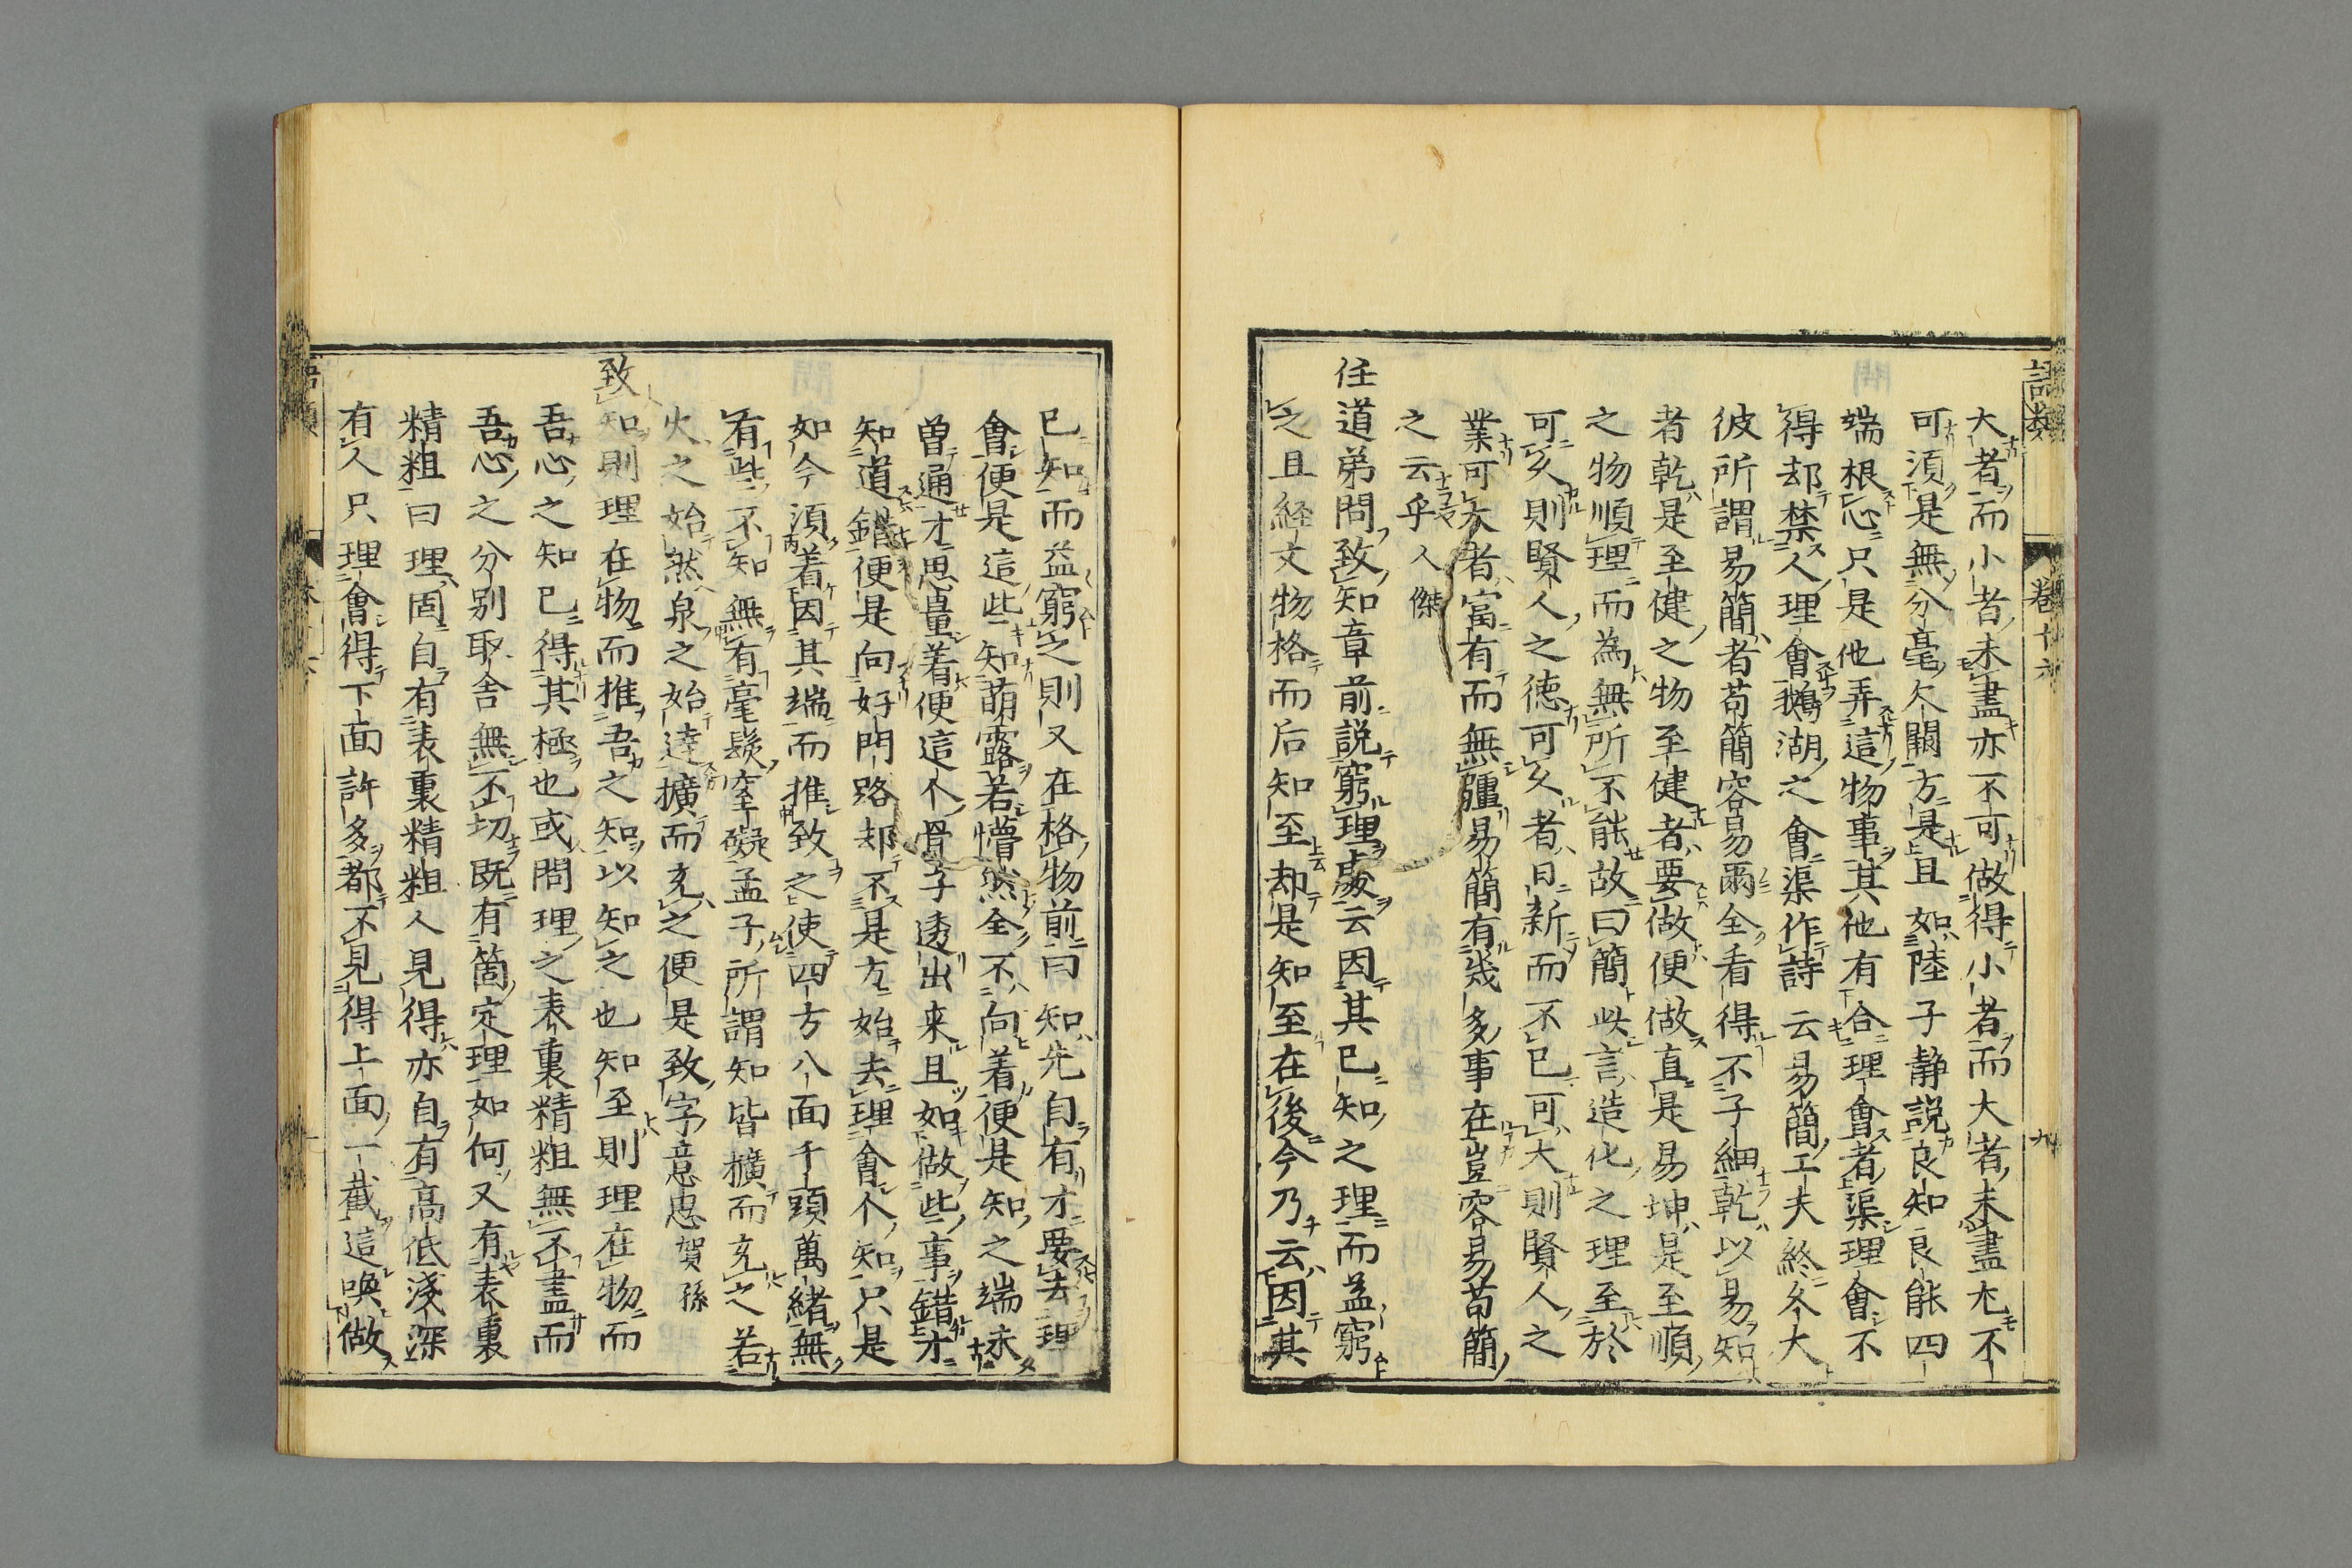 語類
卷十六
九
大者而小者未盡亦不可做得小者而大者未盡尤不
可須是無分毫欠闕方是且如陸子静説良知良能四
端根心只是他弄這物事其他有合理會者渠理會不
得却禁人理會鵝湖之會渠作詩云易簡工夫終久大
彼所謂易簡者苟簡容易爾全看得不子細乾以易知
者乾是至健之物至健者要做便做直是易坤是至順
之物順理而為無所不能故曰簡此言造化之理至於
可久則賢人之德可久者日新而不已可大則賢人之
業可大者富有而無疆易簡有幾多事在豈容易苟簡
之云乎人傑
任道弟問致知章前説窮理處云因其已知之理而益窮
之且經文物格而后知至却是知至在後今乃云因其
已知而益窮之則又在格物前曰知先自有才要去理
會便是這些知萌露若懵然全不向着便是知之端未
曽通才思量着便這个骨子透出来且如做些事錯才
知道錯便是向好門路却不是方始去理會个知只是
如今須着因其端而推致之使四方八面千頭萬緒無
有些不知無有毫髮窒礙孟子所謂知皆擴而充之若
火之始然泉之始達擴而充之便是致字意思賀孫
致知則理在物而推吾之知以知之也知至則理在物而
吾心之知已得其極也或問理之表裏精粗無不盡而
吾心之分别取舍無不切既有箇定理如何又有表裏
精粗曰理固自有表裏精粗人見得亦自有高低淺深
有人只理會得下面許多都不見得上面一截這喚做